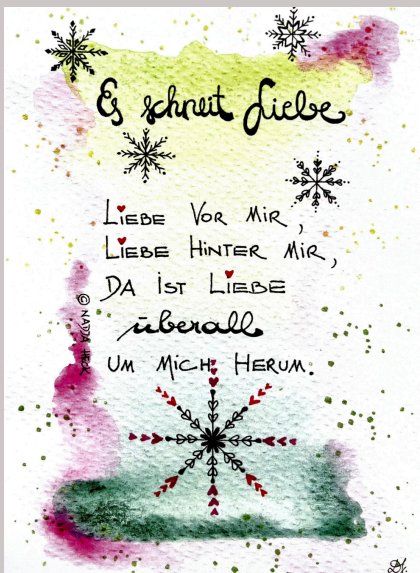 Es schneit Liebe
LIEBE VOR MIR,
LIEBE HINTER MIR,
DA IST LIEBE
überall
UM MICH HERUM.
© NADJA HECK